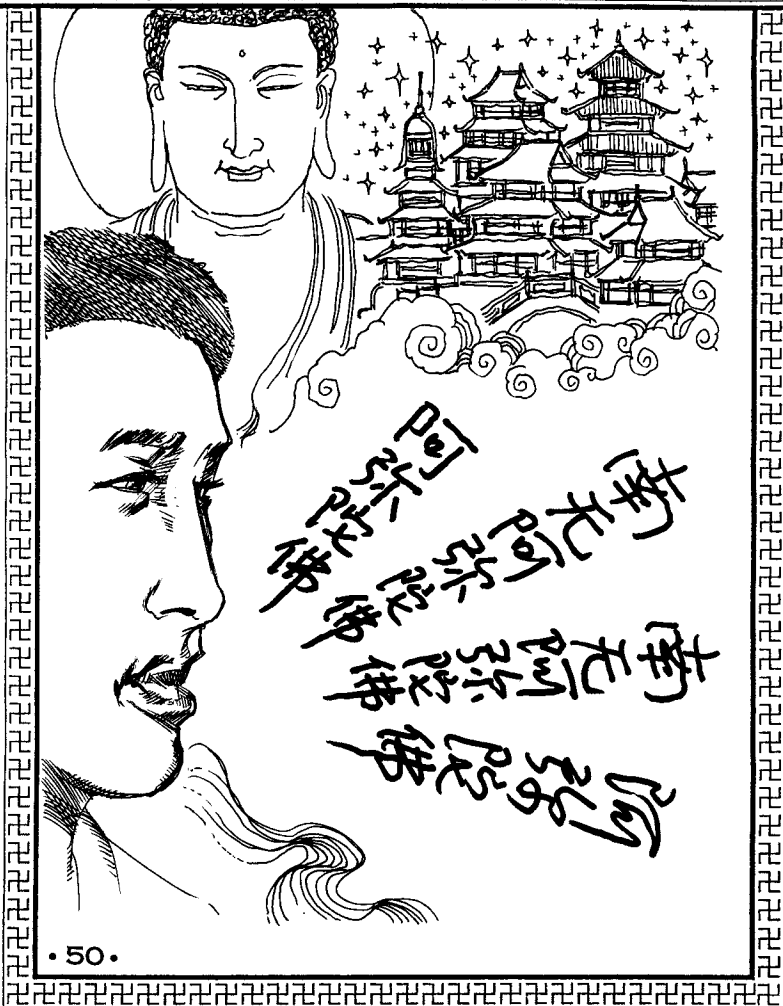 阿弥陀佛
南无阿弥陀佛
南无阿弥陀佛
阿弥陀佛
·50·